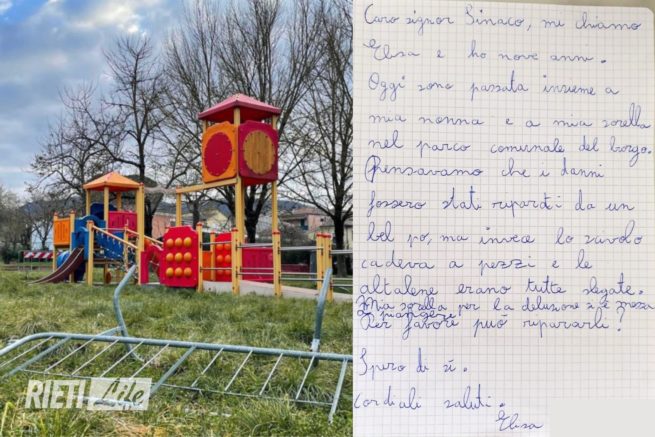 Caro signor Sinaco, mi chiamo
Elisa e ho nove anni.
Oggi sono passata insieme a
mia nonna e a mia sorella
nel parco comunale del borgo.
Pensavamo che i danni
fossero stati riparati da un
bel po, ma invece lo scivolo
cadeva a pezzi e le
altalene erano tutte slegate.
Mia sorella per la delusione si è messa
a piangere
Per favore può ripararli?
Spero di sì.
Cordiali saluti.
Elisa
RIETI Life